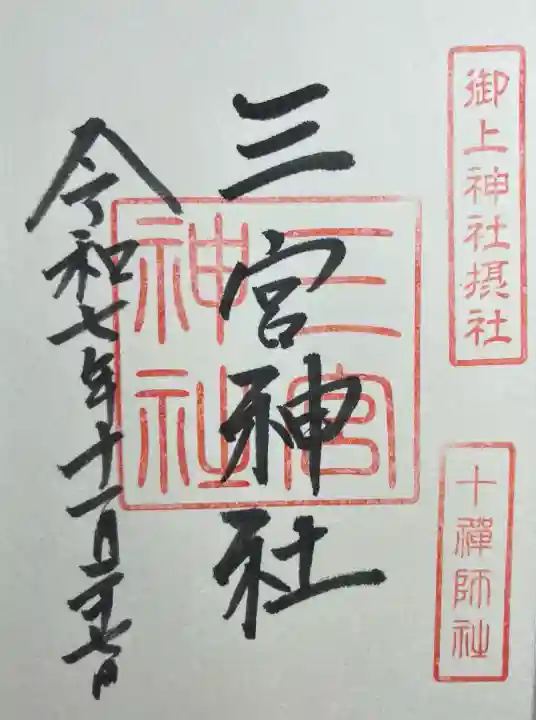 御上神社摂社
十禪師社
三宮神社
三宮神社
令和七年十一月二十七日